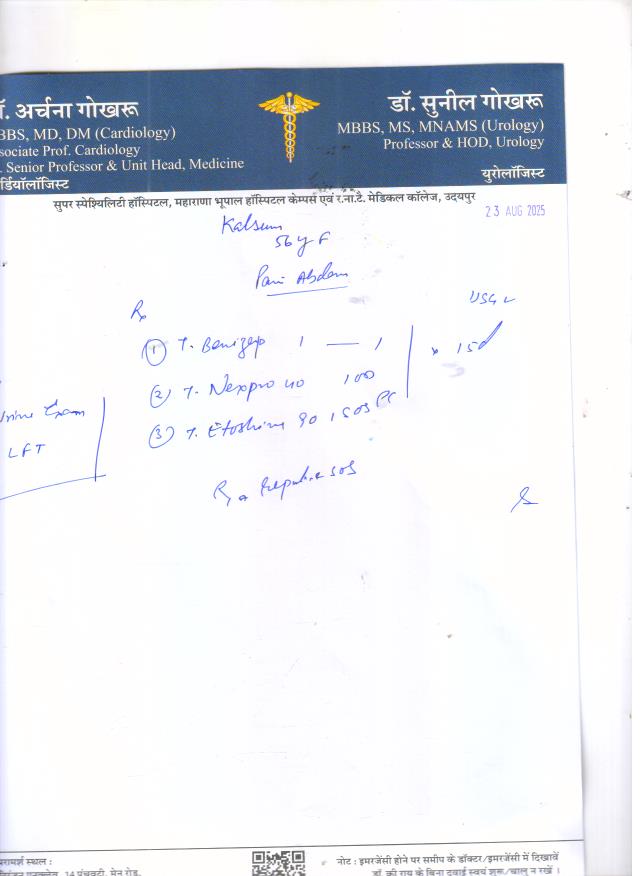 ॉ. अर्चना गोखरू
BBS, MD, DM (Cardiology)
sociate Prof. Cardiology
. Senior Professor & Unit Head, Medicine
र्डियॉलॉजिस्ट
डॉ. सुनील गोखरू
MBBS, MS, MNAMS (Urology)
Professor & HOD, Urology
युरोलॉजिस्ट
सुपर स्पेश्यिलिटी हॉस्पिटल, महाराणा भूपाल हॉस्पिटल केम्पर्स एवं र.ना.टै. मेडिकल कॉलेज, उदयपुर
23 AUG 2025
Kalsum
56 y F
Pain Abdom
USG
Rx
(1) T. 1 — 1
(2) T. Nexpro 40 100
x 15d
(3) T. Etoshine 90 1 SOS PC
Urine Exam
LFT
SOS
रामर्श स्थल :
14 पंचवटी, मेन रोड,
नोट : इमरजेंसी होने पर समीप के डॉक्टर/इमरजेंसी में दिखावें
डॉ. की राय के बिना दवाई स्वयं शुरू/चालू न रखें ।